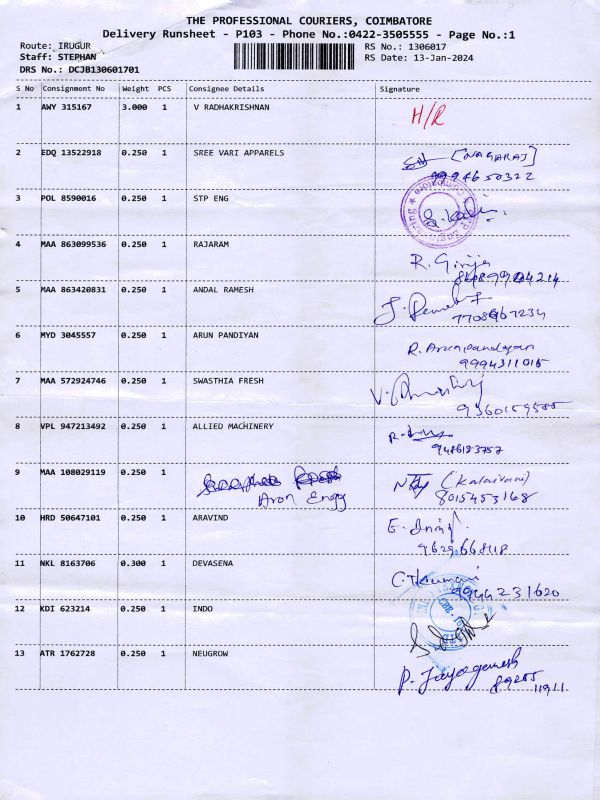 THE PROFESSIONAL COURIERS, COIMBATORE
Delivery Runsheet - P103 - Phone No.:0422-3505555 - Page No.:1
Route: IRUGUR RS No.: 1306017
Staff: STEPHAN RS Date: 13-Jan-2024
DRS No.: DCJB130601701
S No Consignment No Weight PCS Consignee Details Signature
1 AWY 315167 3.000 1 V RADHAKRISHNAN H/R
2 EDQ 13522918 0.250 1 SREE VARI APPARELS [NAGARAJ]
9994650322
3 POL 8590016 0.250 1 STP ENG
4 MAA 863099536 0.250 1 RAJARAM R. Girija
5 MAA 863420831 0.250 1 ANDAL RAMESH
7708967234
6 MYD 3045557 0.250 1 ARUN PANDIYAN R. Arunpandiyan
9994311015
7 MAA 572924746 0.250 1 SWASTHIA FRESH
9360159585
8 VPL 947213492 0.250 1 ALLIED MACHINERY
9486183757
9 MAA 108029119 0.250 1 (Kalaivani)
Aron Engg 8015453168
10 HRD 50647101 0.250 1 ARAVIND
9629668118
11 NKL 8163706 0.300 1 DEVASENA C.T.Kumari
9944231620
12 KDI 623214 0.250 1 INDO
13 ATR 1762728 0.250 1 NEUGROW P. Jayaganesh
89255
11911